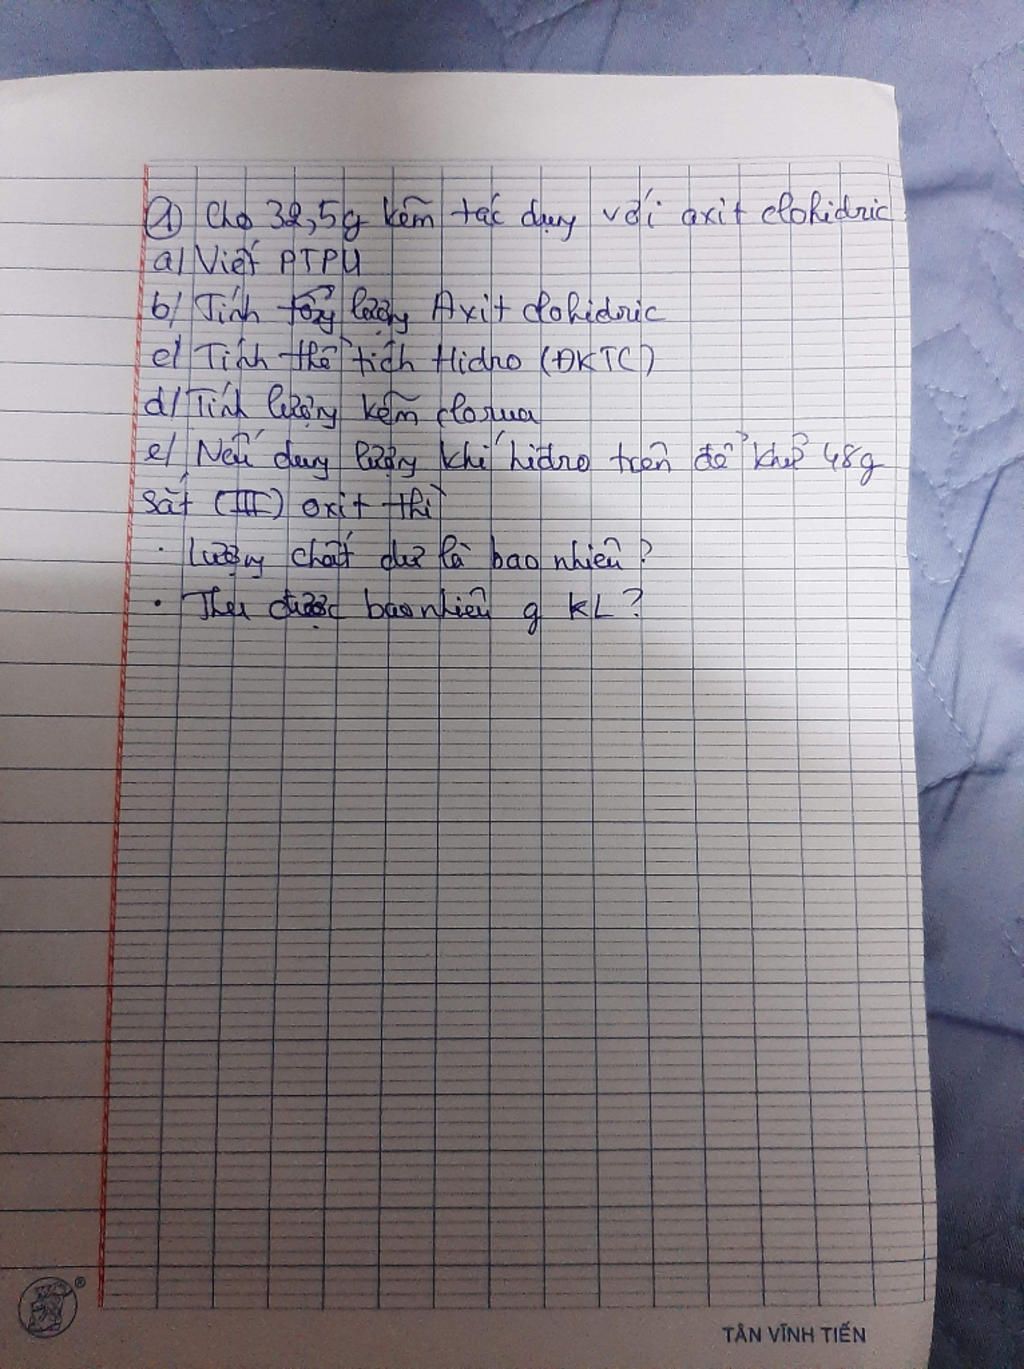 ① Cho 32,5g kẽm tác dụng với axit clohidric
a/ Viết PTPU
b/ Tính lượng Axit clohidric
c/ Tính thể tích Hidro (ĐKTC)
d/ Tính lượng kẽm clorua
e/ Nếu dùng lượng khí hidro trên để khử 48g
sắt (III) oxit thì
· Lượng chất dư là bao nhiêu?
· Thu được bao nhiêu g KL?
®
TÂN VĨNH TIẾN